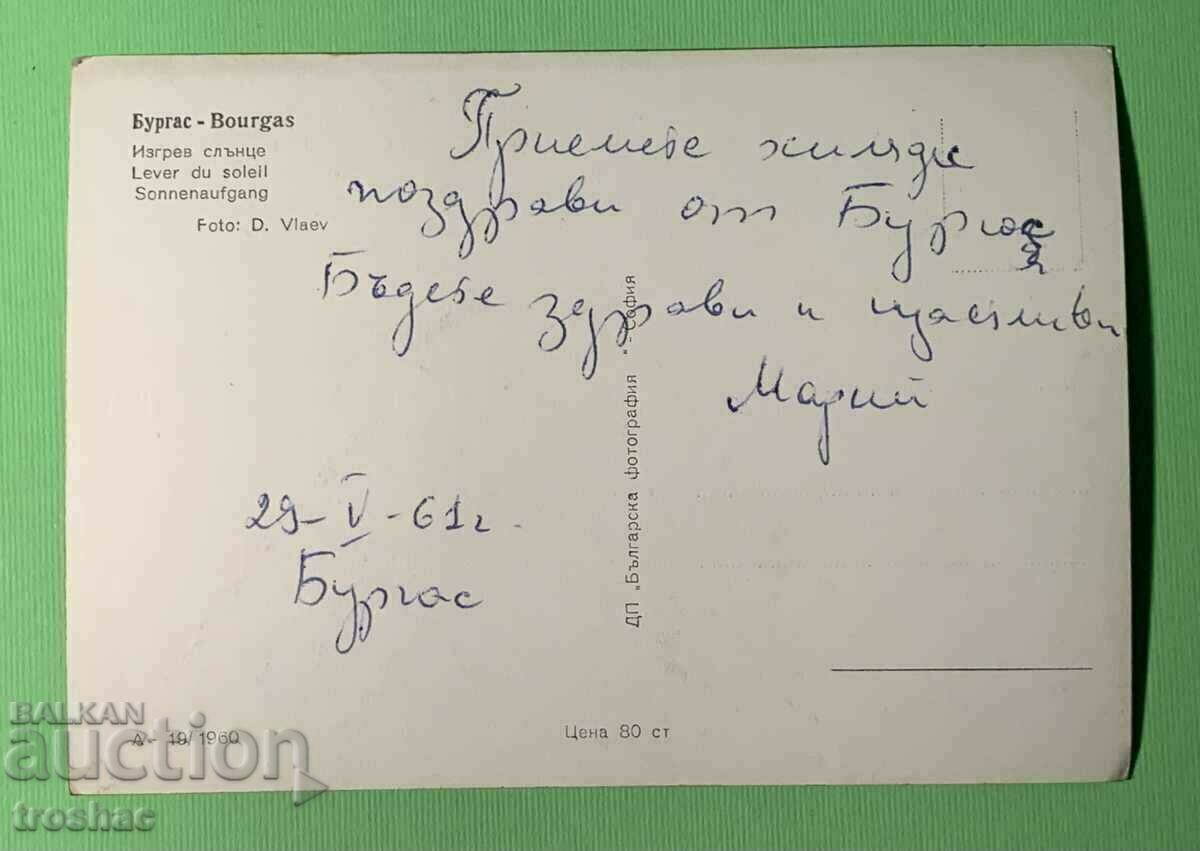 Бургас - Bourgas
Изгрев слънце
Lever du soleil
Sonnenaufgang
Foto: D. Vlaev
Приемете хиляди
поздрави от Бургас
Бъдете здрави и щастливи
Марий
29-V-61г.
Бургас
ДП „Българска фотография“ - София
А - 19/1960
Цена 80 ст
BALKAN
auction
troshac